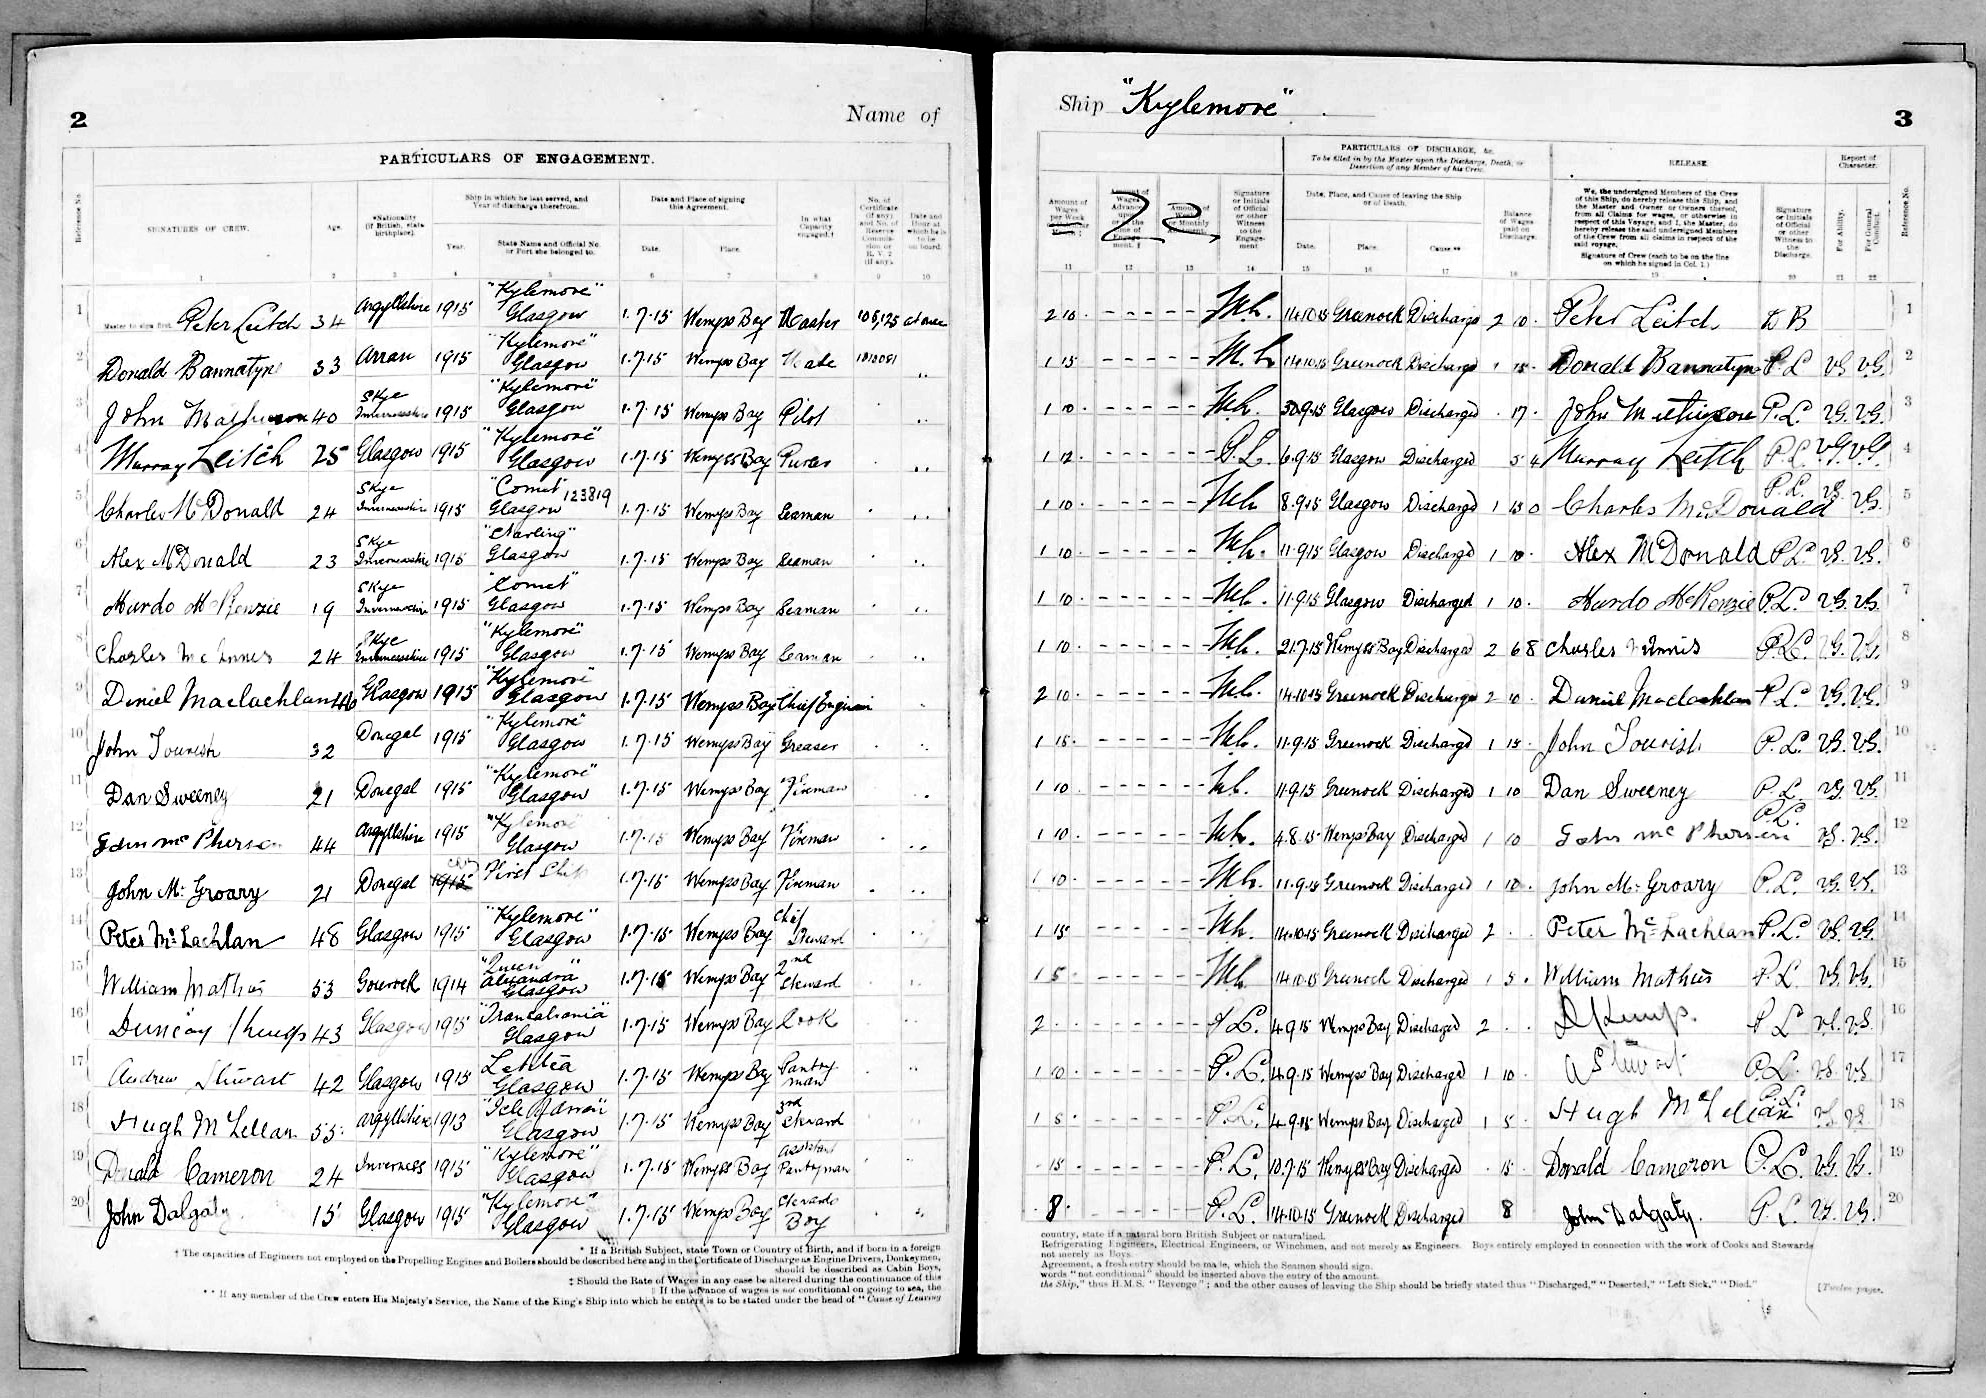 2
Name of
PARTICULARS OF ENGAGEMENT.
Reference No.
SIGNATURES OF CREW.
Age.
*Nationality (If British, state birthplace).
Ship in which he last served, and Year of discharge therefrom.
Year.
State Name and Official No. or Port she belonged to.
Date and Place of signing this Agreement.
Date.
Place.
In what Capacity engaged.†
No. of Certificate (if any) and No. of Reserve Commission or R. V. 2 (if any).
Date and Hour at which he is to be on board.
1 2 3 4 5 6 7 8 9 10
1 Master to sign first. Peter Leitch 34 Argyllshire 1915 "Kylemore" Glasgow 1.7.15 Wemyss Bay Master 105,125 at once
2 Donald Bannatyne 33 Arran 1915 "Kylemore" Glasgow 1.7.15 Wemyss Bay Mate ..
3 John Mathieson 40 Skye Invernesshire 1915 "Kylemore" Glasgow 1.7.15 Wemyss Bay Pilot ..
4 Murray Leitch 25 Glasgow 1915 "Kylemore" Glasgow 1.7.15 Wemyss Bay Purser ..
5 Charles McDonald 24 Skye Invernesshire 1915 "Comet" 123819 Glasgow 1.7.15 Wemyss Bay Seaman ..
6 Alex McDonald 23 Skye Invernesshire 1915 Glasgow 1.7.15 Wemyss Bay Seaman ..
7 Murdo McKenzie 19 Skye Invernesshire 1915 "Comet" Glasgow 1.7.15 Wemyss Bay Seaman ..
8 Charles McInnes 24 Skye Invernesshire 1915 "Kylemore" Glasgow 1.7.15 Wemyss Bay Seaman ..
9 Daniel Maclachlan 46 Glasgow 1915 "Kylemore" Glasgow 1.7.15 Wemyss Bay Chief Engineer
10 John Tourish 32 Donegal 1915 "Kylemore" Glasgow 1.7.15 Wemyss Bay Greaser ..
11 Dan Sweeney 21 Donegal 1915 "Kylemore" Glasgow 1.7.15 Wemyss Bay Fireman ..
12 John McPherson 44 Argyllshire 1915 "Kylemore" Glasgow 1.7.15 Wemyss Bay Fireman ..
13 John McGroary 21 Donegal 1915 First Ship 1.7.15 Wemyss Bay Fireman ..
14 Peter McLachlan 48 Glasgow 1915 "Kylemore" Glasgow 1.7.15 Wemyss Bay Chief Steward ..
15 William Mathies 53 Gourock 1914 "Queen Alexandra" Glasgow 1.7.15 Wemyss Bay 2nd Steward ..
16 Duncan Kemp 43 Glasgow 1915 Glasgow 1.7.15 Wemyss Bay Cook ..
17 Andrew Stewart 42 Glasgow 1915 Letitia Glasgow 1.7.15 Wemyss Bay Pantryman ..
18 Hugh McLellan 55 Argyllshire 1913 "Isle of Arran" Glasgow 1.7.15 Wemyss Bay 3rd Steward
19 Donald Cameron 24 Inverness 1915 "Kylemore" Glasgow 1.7.15 Wemyss Bay Assistant Pantryman
20 John Dalgaty 15 Glasgow 1915 "Kylemore" Glasgow 1.7.15 Wemyss Bay Stewards Boy ..
* If a British Subject, state Town or Country of Birth, and if born in a foreign
† The capacities of Engineers not employed on the Propelling Engines and Boilers should be described here and in the Certificate of Discharge as Engine Drivers, Donkeymen,
should be described as Cabin Boys,
‡ Should the Rate of Wages in any case be altered during the continuance of this
|| If the advance of wages is not conditional on going to sea, the
** If any member of the Crew enters His Majesty's Service, the Name of the King's Ship into which he enters is to be stated under the head of "Cause of Leaving
Ship "Kylemore"
3
PARTICULARS OF DISCHARGE, &c.
To be filled in by the Master upon the Discharge, Death, or Desertion of any Member of his Crew.
RELEASE.
Report of Character.
Amount of Wages per Week
Signature or Initials of Official or other Witness to the Engagement
Date, Place, and Cause of leaving the Ship or of Death.
Date.
Place.
Cause.**
Balance of Wages paid on Discharge.
We, the undersigned Members of the Crew of this Ship, do hereby release this Ship, and the Master and Owner or Owners thereof, from all Claims for wages, or otherwise in respect of this Voyage, and I, the Master, do hereby release the said undersigned Members of the Crew from all claims in respect of the said voyage.
Signature of Crew (each to be on the line on which he signed in Col. 1.)
Signature or Initials of Official or other Witness to the Discharge.
For Ability.
For General Conduct.
Reference No.
11 12 13 14 15 16 17 18 19 20 21 22
2 10 14.10.15 Greenock Discharged 2 10 Peter Leitch DB 1
1 15 14.10.15 Greenock Discharged 1 15 Donald Bannatyne P.L V.G V.G. 2
1 10 30.9.15 Glasgow Discharged 17 John Mathieson P.L. V.G. V.G. 3
1 12 P.L. 6.9.15 Glasgow Discharged 5 4 Murray Leitch P.L V.G. V.G. 4
1 10 8.9.15 Glasgow Discharged 1 15 0 Charles McDonald P.L. V.G. V.G. 5
1 10 11.9.15 Glasgow Discharged 1 10 Alex McDonald P.L V.G. V.G. 6
1 10 11.9.15 Glasgow Discharged 1 10 Murdo McKenzie P.L. V.G. V.G. 7
1 10 21.7.15 Wemyss Bay Discharged 2 6 8 Charles McInnis P.L. V.G. V.G. 8
2 10 14.10.15 Greenock Discharged 2 10 Daniel Maclachlan P.L. V.G. V.G. 9
1 15 11.9.15 Greenock Discharged 1 15 John Tourish P.L. V.G. V.G. 10
1 10 11.9.15 Greenock Discharged 1 10 Dan Sweeney P.L. V.G. V.G. 11
1 10 4.8.15 Wemyss Bay Discharged 1 10 John McPherson P.L. V.G. V.G. 12
1 10 11.9.15 Greenock Discharged 1 10 John McGroary P.L. V.G. V.G. 13
1 15 14.10.15 Greenock Discharged 2 Peter McLachlan P.L. V.G. V.G. 14
1 5 14.10.15 Greenock Discharged 1 5 William Mathies P.L. V.G. V.G. 15
2 P.L. 4.9.15 Wemyss Bay Discharged 2 D Kemp. P L V.G. V.G. 16
1 10 P.L. 4.9.15 Wemyss Bay Discharged 1 10 A Stewart P.L. V.G. V.G. 17
1 5 P.L. 4.9.15 Wemyss Bay Discharged 1 5 Hugh McLellan P.L. V.G. V.G. 18
15 P.L. 10.7.15 Wemyss Bay Discharged 15 Donald Cameron P.L. V.G. V.G. 19
8 P.L. 14.10.15 Greenock Discharged 8 John Dalgaty. P.L. V.G. V.G. 20
country, state if a natural born British Subject or naturalised.
Refrigerating Engineers, Electrical Engineers, or Winchmen, and not merely as Engineers. Boys entirely employed in connection with the work of Cooks and Stewards
not merely as Boys.
Agreement, a fresh entry should be made, which the Seamen should sign.
words "not conditional" should be inserted above the entry of the amount.
the Ship," thus H.M.S. "Revenge"; and the other causes of leaving the Ship should be briefly stated thus "Discharged," "Deserted," "Left Sick," "Died."
[Twelve pages.